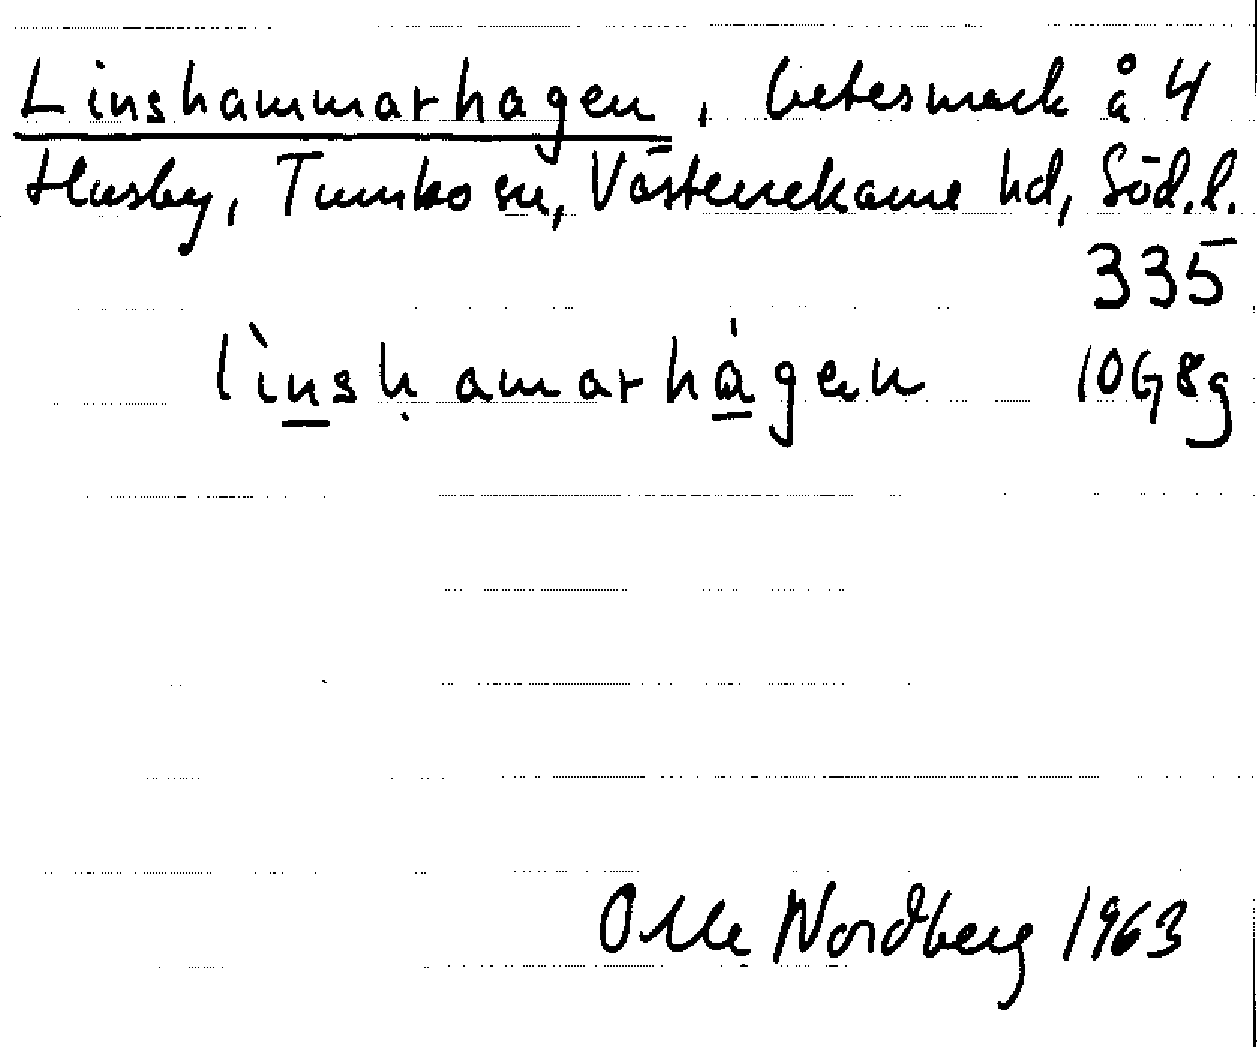 Linshammarhagen, betesmark å 4
Husby, Tumbo sn, Västerrekarne hd, Söd.l.
335
lìnsḥamarhágen 10G8g
Olle Nordberg 1963